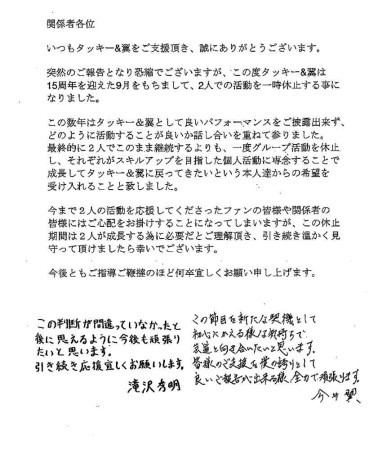 関係者各位
いつもタッキー&翼をご支援頂き、誠にありがとうございます。
突然のご報告となり恐縮でございますが、この度タッキー&翼は
15周年を迎えた9月をもちまして、2人での活動を一時休止する事に
なりました。
この数年はタッキー&翼として良いパフォーマンスをご披露出来ず、
どのように活動することが良いか話し合いを重ねて参りました。
最終的に2人でこのまま継続するよりも、一度グループ活動を休止
し、それぞれがスキルアップを目指した個人活動に専念することで
成長してタッキー&翼に戻ってきたいという本人達からの希望を
受け入れることと致しました。
今まで2人の活動を応援してくださったファンの皆様や関係者の
皆様にはご心配をお掛けすることになってしまいますが、この休止
期間は2人が成長する為に必要だとご理解頂き、引き続き温かく見
守って頂けましたら幸いでございます。
今後ともご指導ご鞭撻のほど何卒宜しくお願い申し上げます。
この判断が間違っていなかったと
後に思えるように今後も頑張り
たいと思います。
引き続き応援宜しくお願いします。
滝沢秀明
この節目を新たな契機として
初心にかえる様な気持ちで
と向き合いたいと思います。
皆様のご支援を僕の誇りとして
良いご報告が出来る様、全力で頑張ります。
今井翼